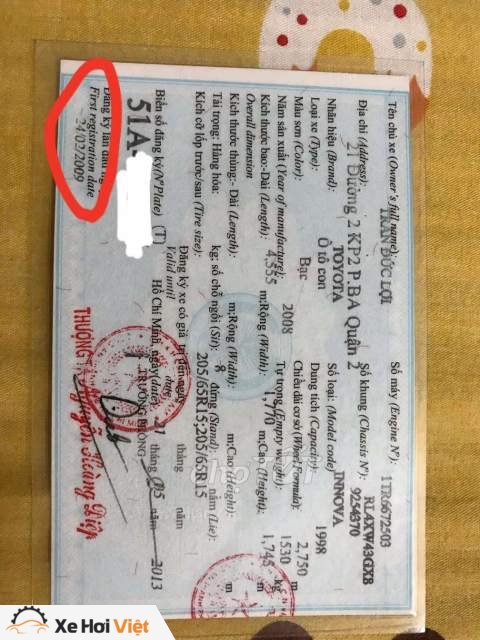 Tên chủ xe (Owner's full name): TRẦN ĐỨC LỢI
Địa chỉ (Address): 21 Đường 2 KP2 P.BA Quận 2
Nhãn hiệu (Brand): TOYOTA
Loại xe (Type): Ô tô con
Màu sơn (Color): Bạc
Năm sản xuất (Year of manufacture): 2008
Kích thước bao:-Dài (Length): 4,555 m;Rộng (Width): 1,770 m;Cao (Height): 1,745 m
Overall dimension
Kích thước thùng:- Dài (Length): m;Rộng (Width): m;Cao (Height): m
Tải trọng: Hàng hóa: kg; số chỗ ngồi (Sit): 8 đứng (Stand): nằm (Lie):
Kích cỡ lốp trước/sau (Tire size): 205/65R15;205/65R15
Số máy (Engine Nº): 1TR6672503
Số khung (Chassis Nº): RL4XW43GX8
9254370
Số loại: (Model code) INNOVA
Dung tích (Capacity): 1998
Chiều dài cơ sở (Wheel Formula): 2,750
Tự trọng (Empty weight): 1530 kg
Biển số đăng ký(Nº Plate) (T)
51A-
Đăng ký lần đầu
First registration date
24/03/2009
Đăng ký xe có giá trị đến ngày tháng năm
Valid until date
Hồ Chí Minh, ngày (date) 27 tháng 05 năm 2013
TRƯỞNG PHÒNG
THƯỢNG TÁ Nguyễn Hoàng Điệp
chợ TỐT
Xe Hơi Việt